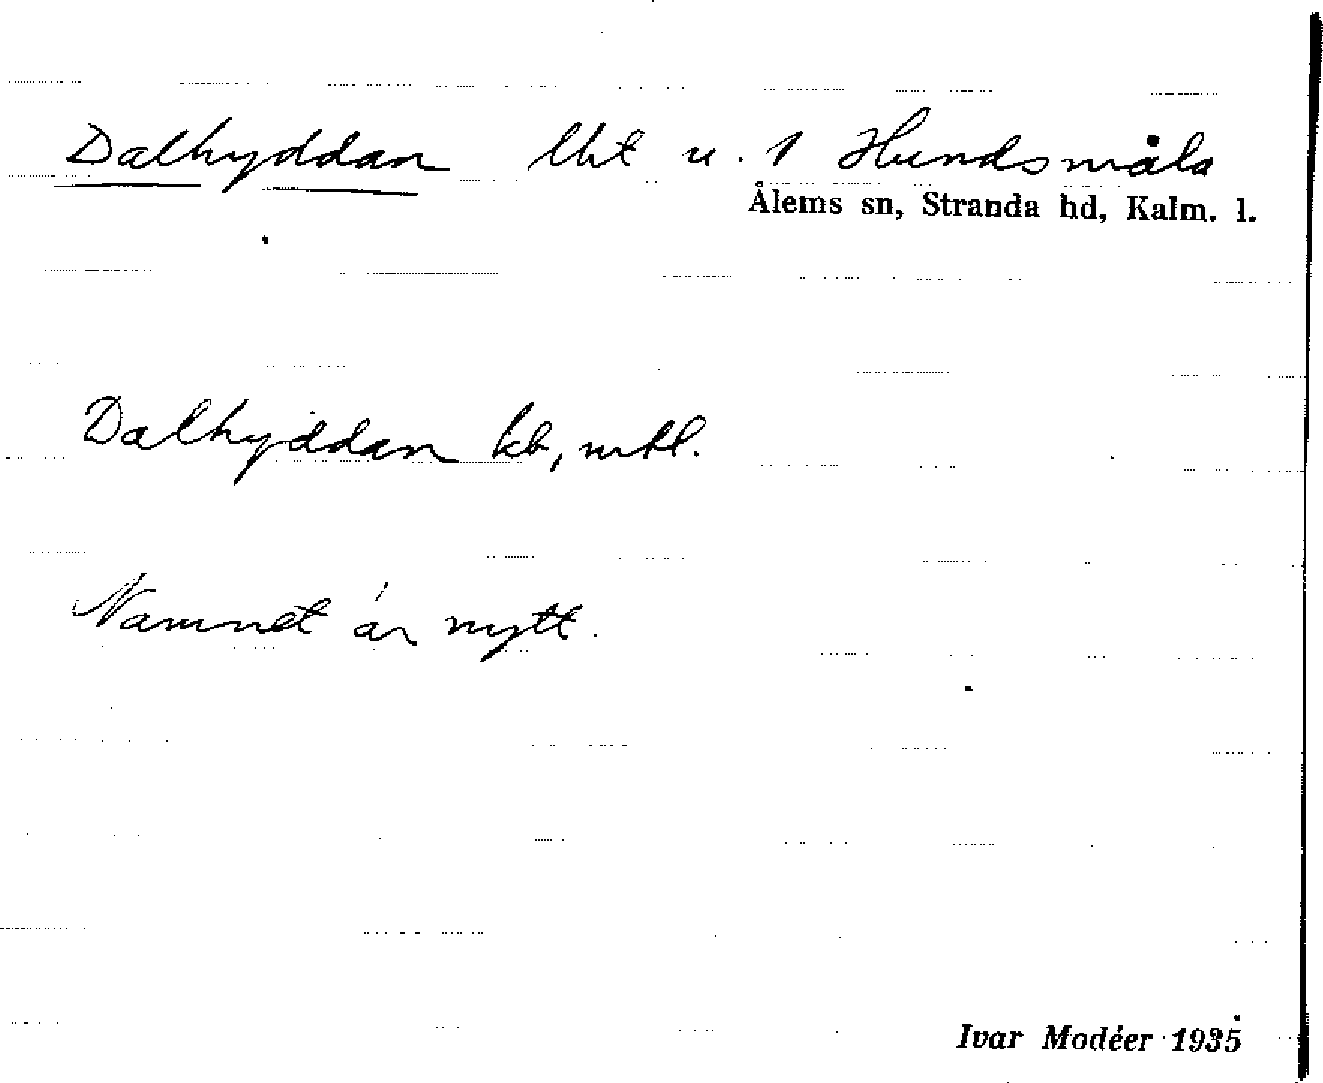 Dalhyddan lht u. 1 Hundsmåla
Ålems sn, Stranda hd, Kalm. l.
Dalhyddan kb, mtl.
Namnet är nytt.
Ivar Modéer 1935